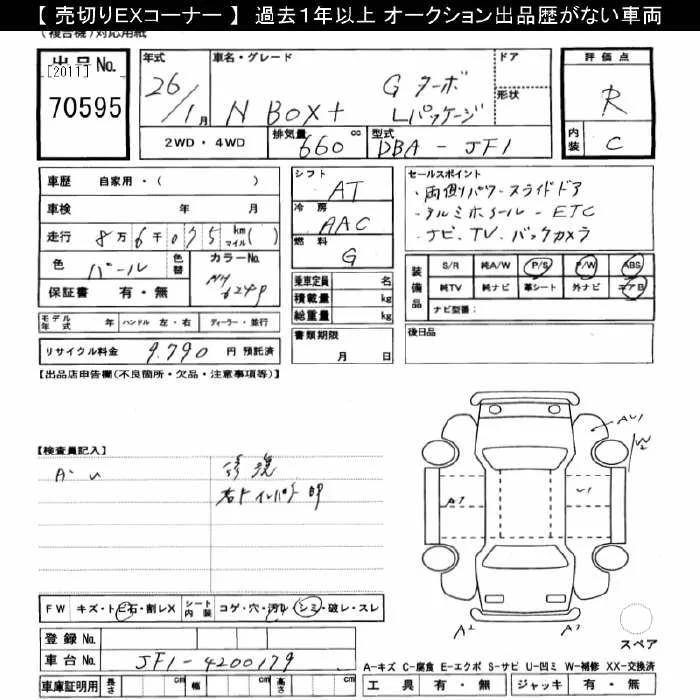 【 売切りEXコーナー 】 過去1年以上 オークション出品歴がない車両
(複合機)対応用紙
出品No.
[2011]
70595
年式
26/1月
車名・グレード
N BOX+ G ターボ
Lパッケージ
ドア
形状
評価点
R
内装 C
2WD ・ 4WD
排気量 660 cc
型式 DBA - JF1
車歴 自家用・( )
車検 年 月
走行 8万6千075 km マイル( )
色 パール
色替
カラーNo. NH624P
保証書 有・無
シフト AT
冷房 AAC
燃料 G
乗車定員 名
積載量 kg
総重量 kg
セールスポイント
・両側パワースライドドア
・アルミホイール - ETC
・ナビ、TV、バックカメラ
装備品
S/R 純A/W P/S P/W ABS
純TV 純ナビ 革シート 外ナビ エアB
ナビ型番:
モデル年式 年 ハンドル 左・右 ディーラー・並行
リサイクル料金 9.790 円 預託済
書類期限
月 日
後日品
【出品店申告欄(不良箇所・欠品・注意事項等)】
【検査員記入】
修復
A2
A3
FW キズ・トビ石・割レX シート内装 コゲ・穴・汚レ・シミ・破レ・スレ
登録No.
車台No. JF1-4200179
車庫証明用 長さ cm 幅 cm 高さ cm
スペア
A-キズ C-腐食 E-エクボ S-サビ U-凹ミ W-補修 XX-交換済
工具 有・無 ジャッキ 有・無